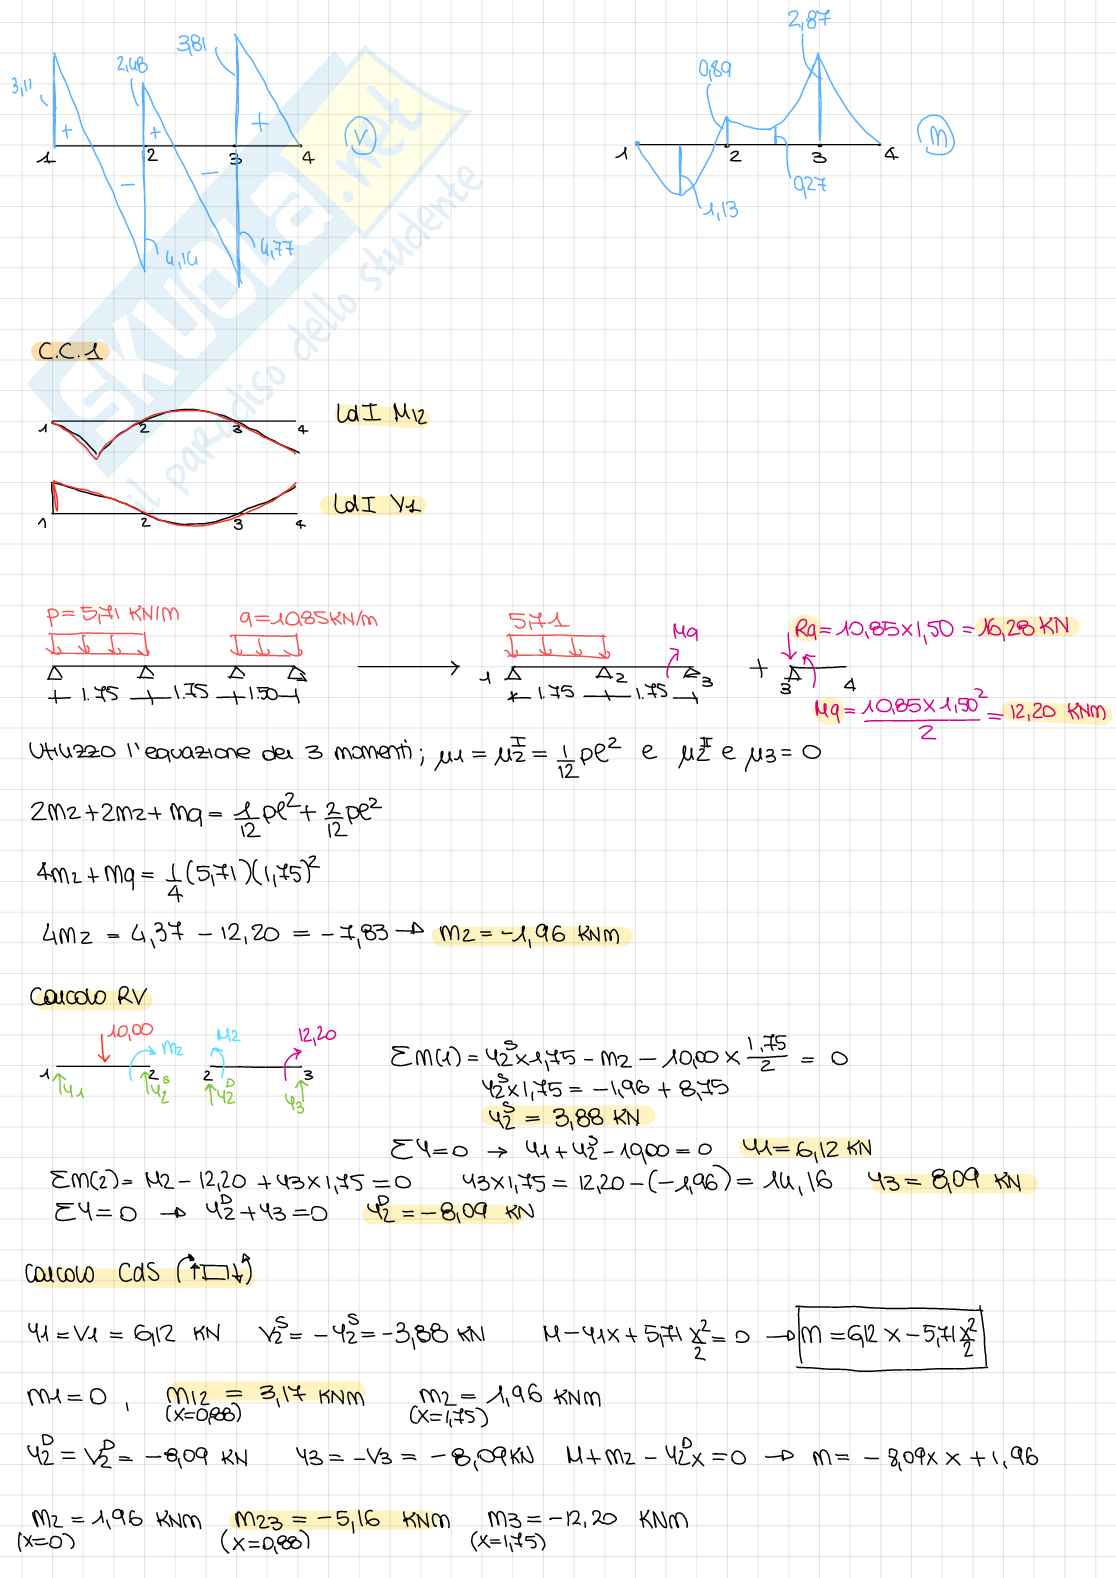 3,11 2,48 3,81 + + + V
1 2 3 4
- -
4,14 4,77
2,87
0,89
1 2 3 4 M
1,13 0,27
SKUOLA.net
il paradiso dello studente
C.C.1
1 2 3 4 LdI M12
1 2 3 4 LdI V1
p = 5,71 KN/m q = 10,85 KN/m 5,71 Mq + Rq = 10,85 x 1,50 = 16,28 KN
1 2 3 3 4
1.75 1.75 1.50 1.75 1.75 Mq = 10,85 x 1,50² / 2 = 12,20 KNm
Utilizzo l'equazione dei 3 momenti; μ1 = μ2ᴵ = 1/12 pl² e μ2ᴵᴵ e μ3 = 0
2M2 + 2M2 + Mq = 1/12 pl² + 2/12 pl²
4M2 + Mq = 1/4 (5,71)(1,75)²
4M2 = 4,37 - 12,20 = -7,83 → M2 = -1,96 KNm
Calcolo RV
10,00 M2 M2 12,20
1 2 2 3
Y1 Y2ˢ Y2ᴰ Y3
ΣM(1) = Y2ˢ x 1,75 - M2 - 10,00 x 1,75/2 = 0
Y2ˢ x 1,75 = -1,96 + 8,75
Y2ˢ = 3,88 KN
ΣY = 0 → Y1 + Y2ˢ - 10,00 = 0 Y1 = 6,12 KN
ΣM(2) = M2 - 12,20 + Y3 x 1,75 = 0 Y3 x 1,75 = 12,20 - (-1,96) = 14,16 Y3 = 8,09 KN
ΣY = 0 → Y2ᴰ + Y3 = 0 Y2ᴰ = -8,09 KN
Calcolo CdS ( )
Y1 = V1 = 6,12 KN V2ˢ = -Y2ˢ = -3,88 KN M - Y1x + 5,71 x²/2 = 0 → M = 6,12 x - 5,71 x²/2
M1 = 0 , M12 = 3,17 KNm M2 = 1,96 KNm
(x=0,88) (x=1,75)
Y2ᴰ = V2ᴰ = -8,09 KN Y3 = -V3 = -8,09 KN M + M2 - Y2ᴰx = 0 → M = -8,09 x x + 1,96
M2 = 1,96 KNm M23 = -5,16 KNm M3 = -12,20 KNm
(x=0) (x=0,88) (x=1,75)